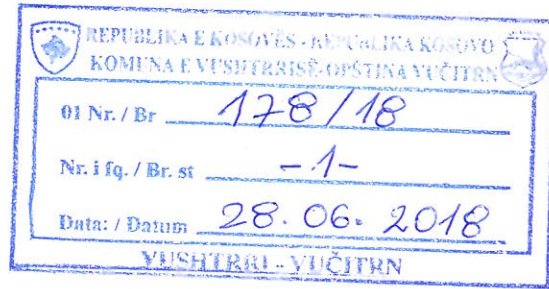 REPUBLIKA E KOSOVËS - REPUBLIKA KOSOVO
KOMUNA E VUSHTRRISË-OPŠTINA VUČITRN
01 Nr. / Br 178/18
Nr. i fq. / Br. st -1-
Data: / Datum 28.06.2018
VUSHTRRI - VUČITRN